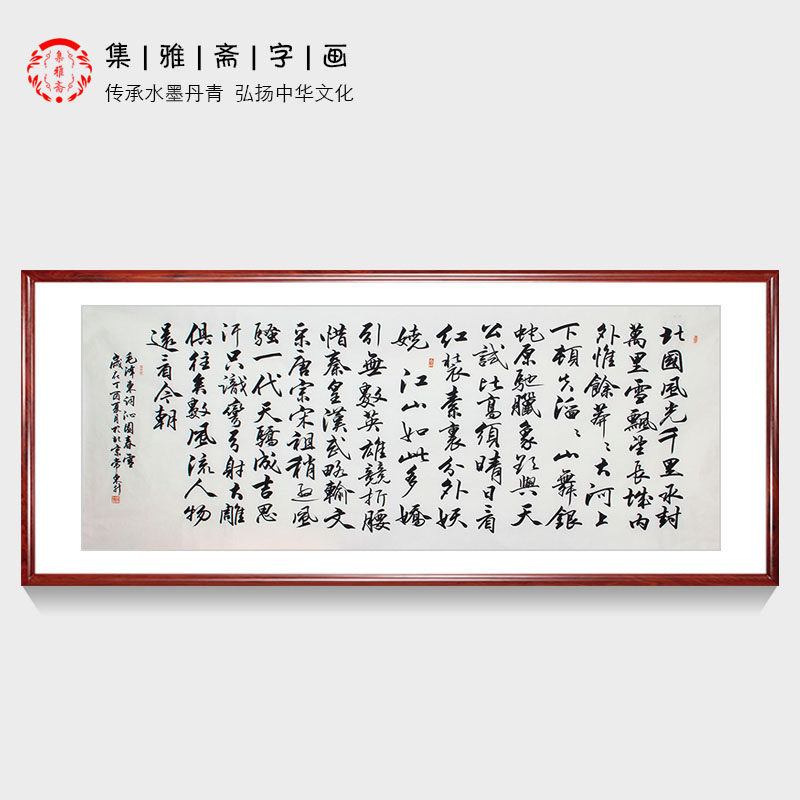 集雅斋
集|雅|斋|字|画
传承水墨丹青 弘扬中华文化
北國風光千里冰封
萬里雪飄望長城内
外惟餘莽〻大河上
下頓失滔〻山舞銀
蛇原馳臘象欲與天
公試比高須晴日看
红裝素裹分外妖
娆江山如此多嬌
引無數英雄競折腰
惜秦皇漢武略輸文
采唐宗宋祖稍遜風
騷一代天驕成吉思
汗只識彎弓射大雕
俱往矣數風流人物
還看今朝
毛澤東詞沁園春雪
歲在丁酉夏月于北京